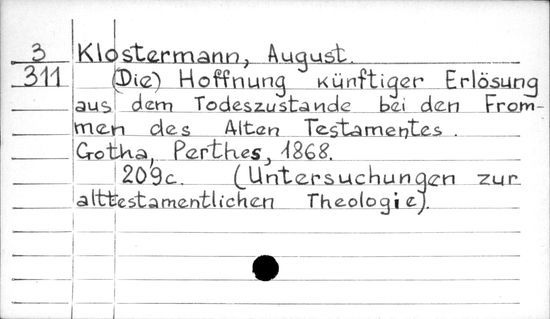 3 Klostermann, August.
311 (Die) Hoffnung künftiger Erlösung
aus dem Todeszustande bei den From-
men des Alten Testamentes.
Gotha, Perthes, 1868.
209c. (Untersuchungen zur
alttestamentlichen Theologie).